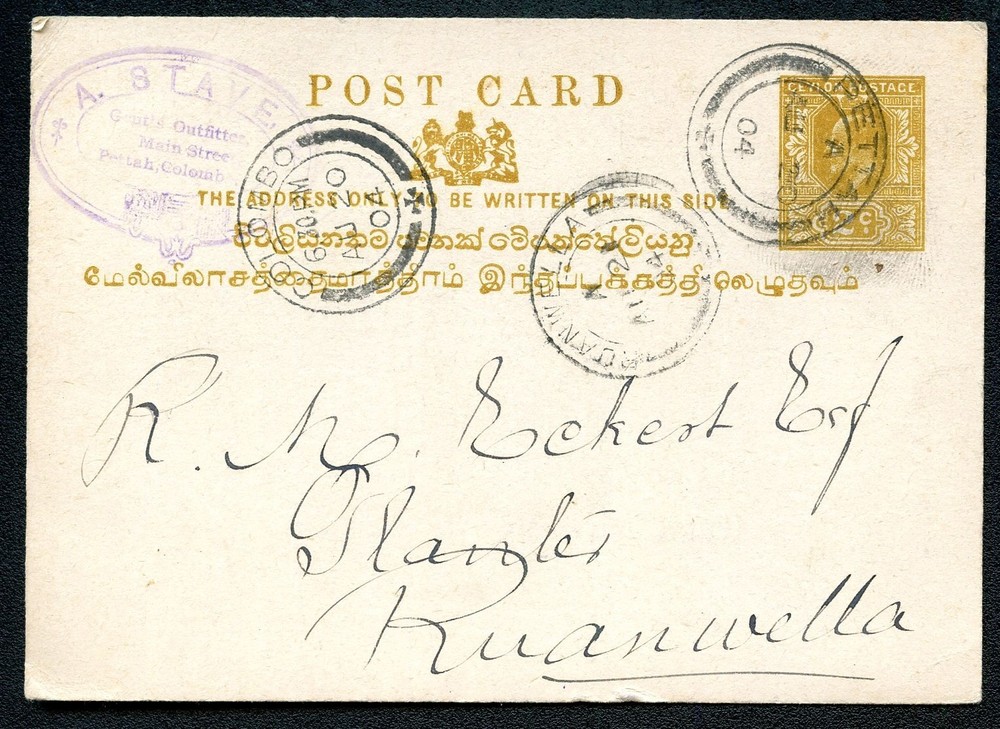 A. STAVE
Gent's Outfitter,
Main Stree
Pettah, Colomb
POST CARD
CEYLON POSTAGE
THE ADDRESS ONLY TO BE WRITTEN ON THIS SIDE
மேல்விலாசத்தைமாத்திரம் இந்தப்பக்கத்தி லெழுதவும்
COLOMBO
6 30 PM
AU 20
04
PETTAH
A
04
RUANWELLA
R. M. Eckert Esq
Planter
Ruanwella